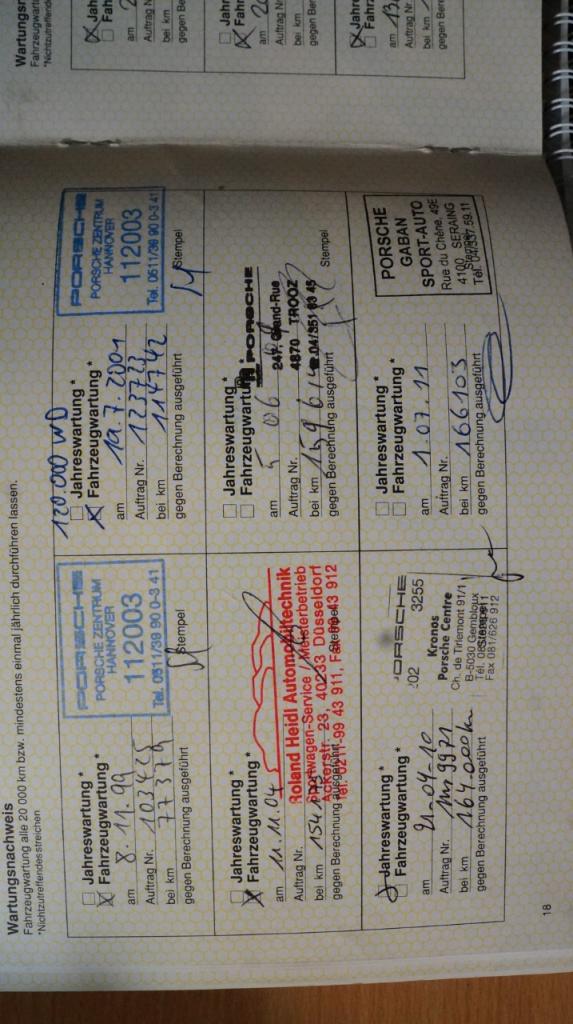 Wartungsnachweis
Fahrzeugwartung alle 20 000 km bzw. mindestens einmal jährlich durchführen lassen.
*Nichtzutreffendes streichen
Jahreswartung *
Fahrzeugwartung *
am 8.11.99
Auftrag Nr. 103425
bei km 77379
gegen Berechnung ausgeführt
PORSCHE
PORSCHE ZENTRUM
HANNOVER
112003
Tel. 0511/39 90 0-3 41
Stempel
120.000 WD
Jahreswartung *
Fahrzeugwartung *
am 19.7.2001
Auftrag Nr. 123723
bei km 114742
gegen Berechnung ausgeführt
PORSCHE
PORSCHE ZENTRUM
HANNOVER
112003
Tel. 0511/39 90 0-3 41
Stempel
Jahreswartung *
Fahrzeugwartung *
am 11.11.04
Auftrag Nr.
bei km
gegen Berechnung ausgeführt
Roland Heidl Automobiltechnik
Sportwagen-Service / Meisterbetrieb
Ackerstr. 23, 40233 Düsseldorf
Tel. 0211-99 43 911, Fax 99 43 912
Stempel
Jahreswartung *
Fahrzeugwartung *
am 5 06
Auftrag Nr.
bei km
gegen Berechnung ausgeführt
PORSCHE
247, Grand-Rue
4870 TROOZ
Stempel
Jahreswartung *
Fahrzeugwartung *
am 21-04-10
Auftrag Nr.
bei km 164.000km
gegen Berechnung ausgeführt
ORSCHE
02 3255
Kronos
Porsche Centre
Ch. de Tirlemont 91/1
B-5030 Gembloux
Fax 081/626 912
Stempel
Jahreswartung *
Fahrzeugwartung *
am 1.07.11
Auftrag Nr.
bei km 166103
gegen Berechnung ausgeführt
PORSCHE
GABAN
SPORT-AUTO
Rue du Chêne, 49E
4100 SERAING
Tél. 04/337.59.11
Stempel
18
Wartungsn
Fahrzeugwartu
*Nichtzutreffende
Jahr
Fah
am 2
Auftrag N
bei km
gegen Ber
Jahre
Fahr
am
Auftrag Nr
bei km
gegen Ber
Jah
Fah
am
Auftrag N
bei km
gegen Be